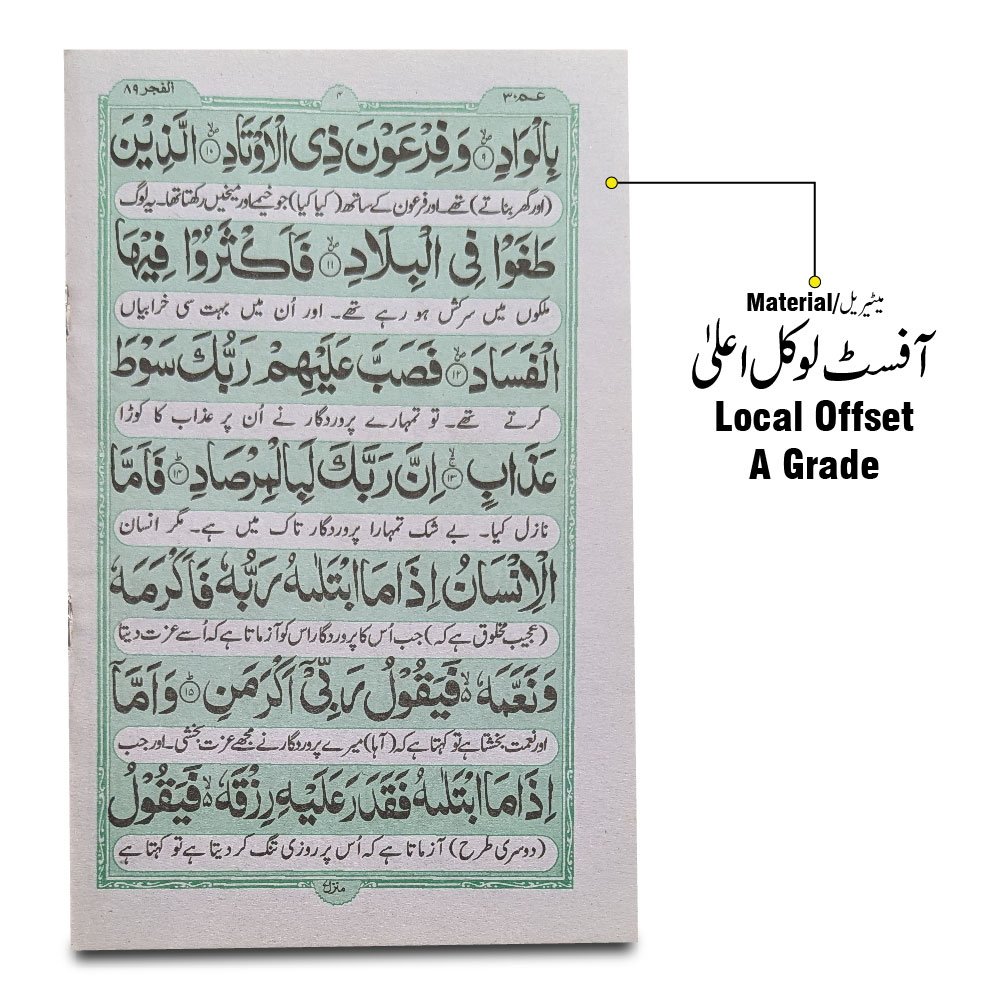 عـم ٣٠
٤
الفجر ٨٩
بِالْوَادِ ۙ۹ وَفِرْعَوْنَ ذِی الْاَوْتَادِ ۙ۱۰ الَّذِیْنَ
(اور گھر بناتے) تھے۔ اور فرعون کے ساتھ (کیا کیا) جو خیمے اور میخیں رکھتا تھا۔ یہ لوگ
طَغَوْا فِی الْبِلَادِ ۙ۱۱ فَاَكْثَرُوْا فِیْهَا
ملکوں میں سرکش ہو رہے تھے۔ اور اُن میں بہت سی خرابیاں
الْفَسَادَ ۙ۱۲ فَصَبَّ عَلَیْهِمْ رَبُّكَ سَوْطَ
کرتے تھے۔ تو تمہارے پروردگار نے اُن پر عذاب کا کوڑا
عَذَابٍ ۚۙ۱۳ اِنَّ رَبَّكَ لَبِالْمِرْصَادِ ؕ۱۴ فَاَمَّا
نازل کیا۔ بے شک تمہارا پروردگار تاک میں ہے۔ مگر انسان
الْاِنْسَانُ اِذَا مَا ابْتَلٰىهُ رَبُّهٗ فَاَكْرَمَهٗ
(عجیب مخلوق ہے کہ) جب اُس کا پروردگار اس کو آزماتا ہے کہ اُسے عزت دیتا
وَنَعَّمَهٗ ۙ۬ فَیَقُوْلُ رَبِّیْۤ اَكْرَمَنِ ؕ۱۵ وَاَمَّاۤ
اور نعمت بخشتا ہے تو کہتا ہے کہ (آہا) میرے پروردگار نے مجھے عزت بخشی۔ اور جب
اِذَا مَا ابْتَلٰىهُ فَقَدَرَ عَلَیْهِ رِزْقَهٗ ۙ۬ فَیَقُوْلُ
(دوسری طرح) آزماتا ہے کہ اُس پر روزی تنگ کر دیتا ہے تو کہتا ہے
منزل ٧
Material/میٹیریل
آفسٹ لوکل اعلیٰ
Local Offset
A Grade